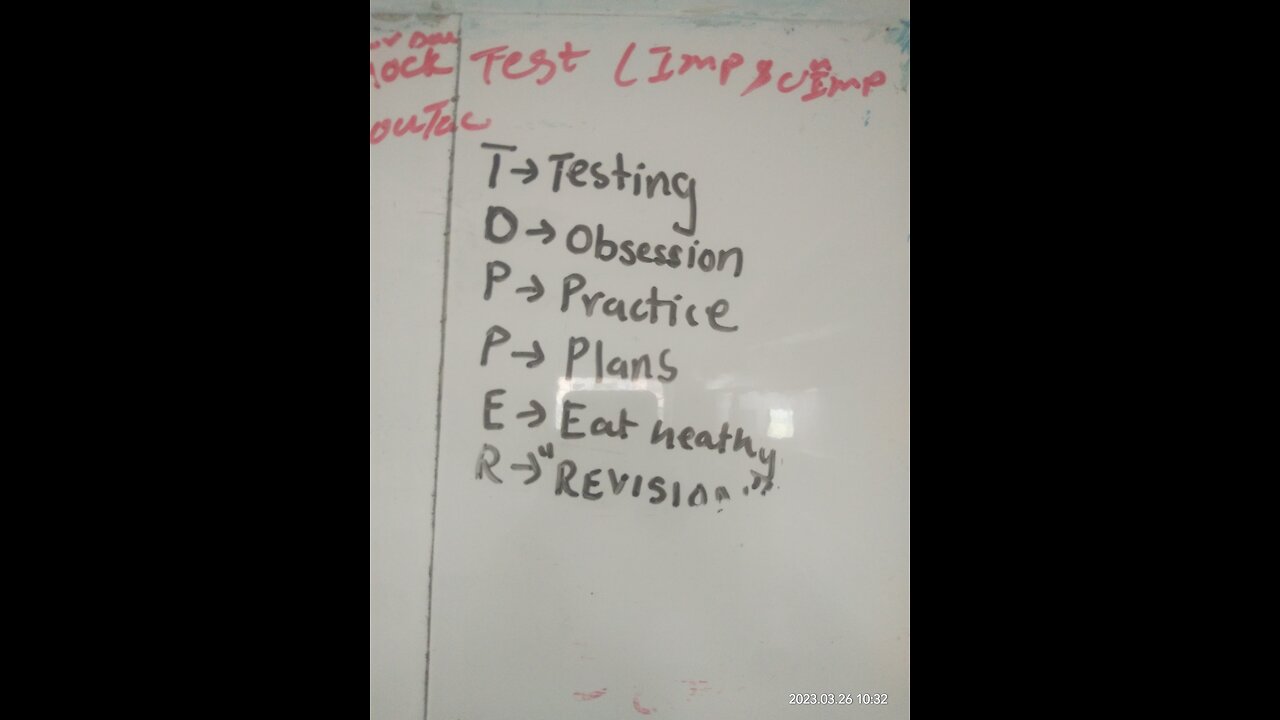 Test (Imp & v Imp
T→ Testing
O→ Obsession
P→ Practice
P→ Plans
E→ Eat heathy
R→ "REVISION"
2023.03.26 10:32